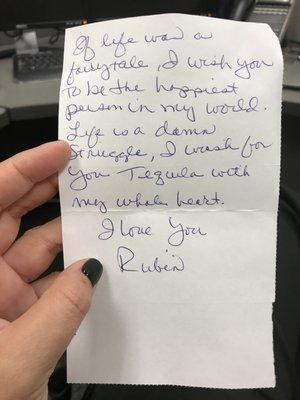 If life was a
fairytale, I wish you
to be the happiest
person in my world.
Life is a damn
struggle, I wash for
you Tequila with
my whole heart.
I love You
Rubin